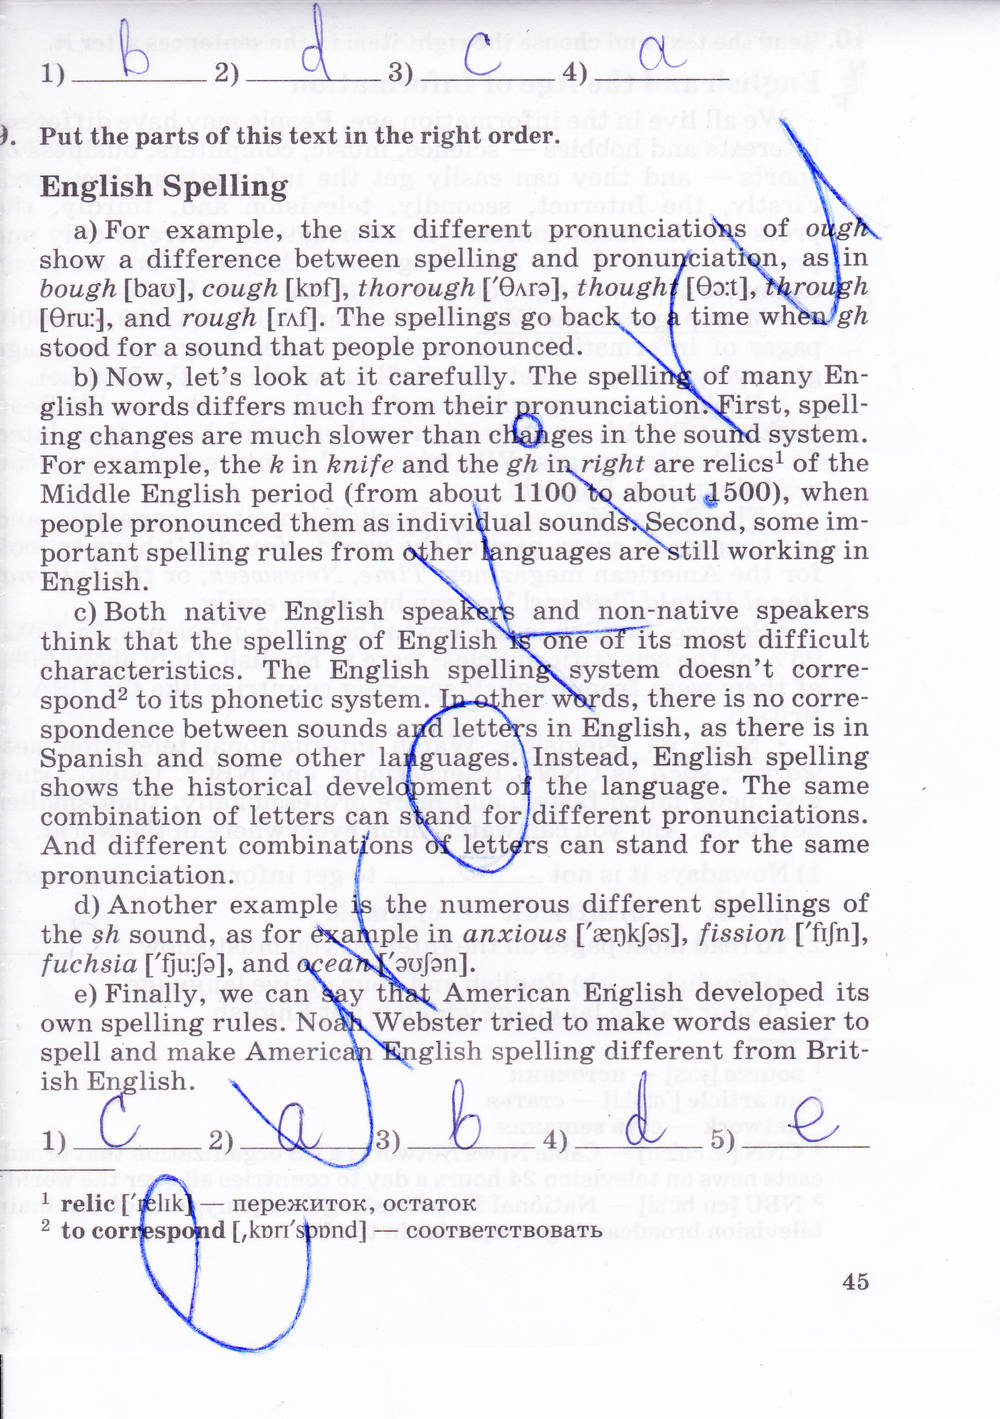 1) b 2) d 3) c 4) a
9. Put the parts of this text in the right order.
English Spelling
a) For example, the six different pronunciations of ough
show a difference between spelling and pronunciation, as in
bough [baʊ], cough [kɒf], thorough [ˈθʌrə], thought [θɔ:t], through
[θru:], and rough [rʌf]. The spellings go back to a time when gh
stood for a sound that people pronounced.
b) Now, let's look at it carefully. The spelling of many En-
glish words differs much from their pronunciation. First, spell-
ing changes are much slower than changes in the sound system.
For example, the k in knife and the gh in right are relics¹ of the
Middle English period (from about 1100 to about 1500), when
people pronounced them as individual sounds. Second, some im-
portant spelling rules from other languages are still working in
English.
c) Both native English speakers and non-native speakers
think that the spelling of English is one of its most difficult
characteristics. The English spelling system doesn't corre-
spond² to its phonetic system. In other words, there is no corre-
spondence between sounds and letters in English, as there is in
Spanish and some other languages. Instead, English spelling
shows the historical development of the language. The same
combination of letters can stand for different pronunciations.
And different combinations of letters can stand for the same
pronunciation.
d) Another example is the numerous different spellings of
the sh sound, as for example in anxious [ˈæŋkʃəs], fission [ˈfɪʃn],
fuchsia [ˈfju:ʃə], and ocean [ˈəʊʃən].
e) Finally, we can say that American English developed its
own spelling rules. Noah Webster tried to make words easier to
spell and make American English spelling different from Brit-
ish English.
1) c 2) a 3) b 4) d 5) e
¹ relic [ˈrelɪk] — пережиток, остаток
² to correspond [ˌkɒrɪˈspɒnd] — соответствовать
45